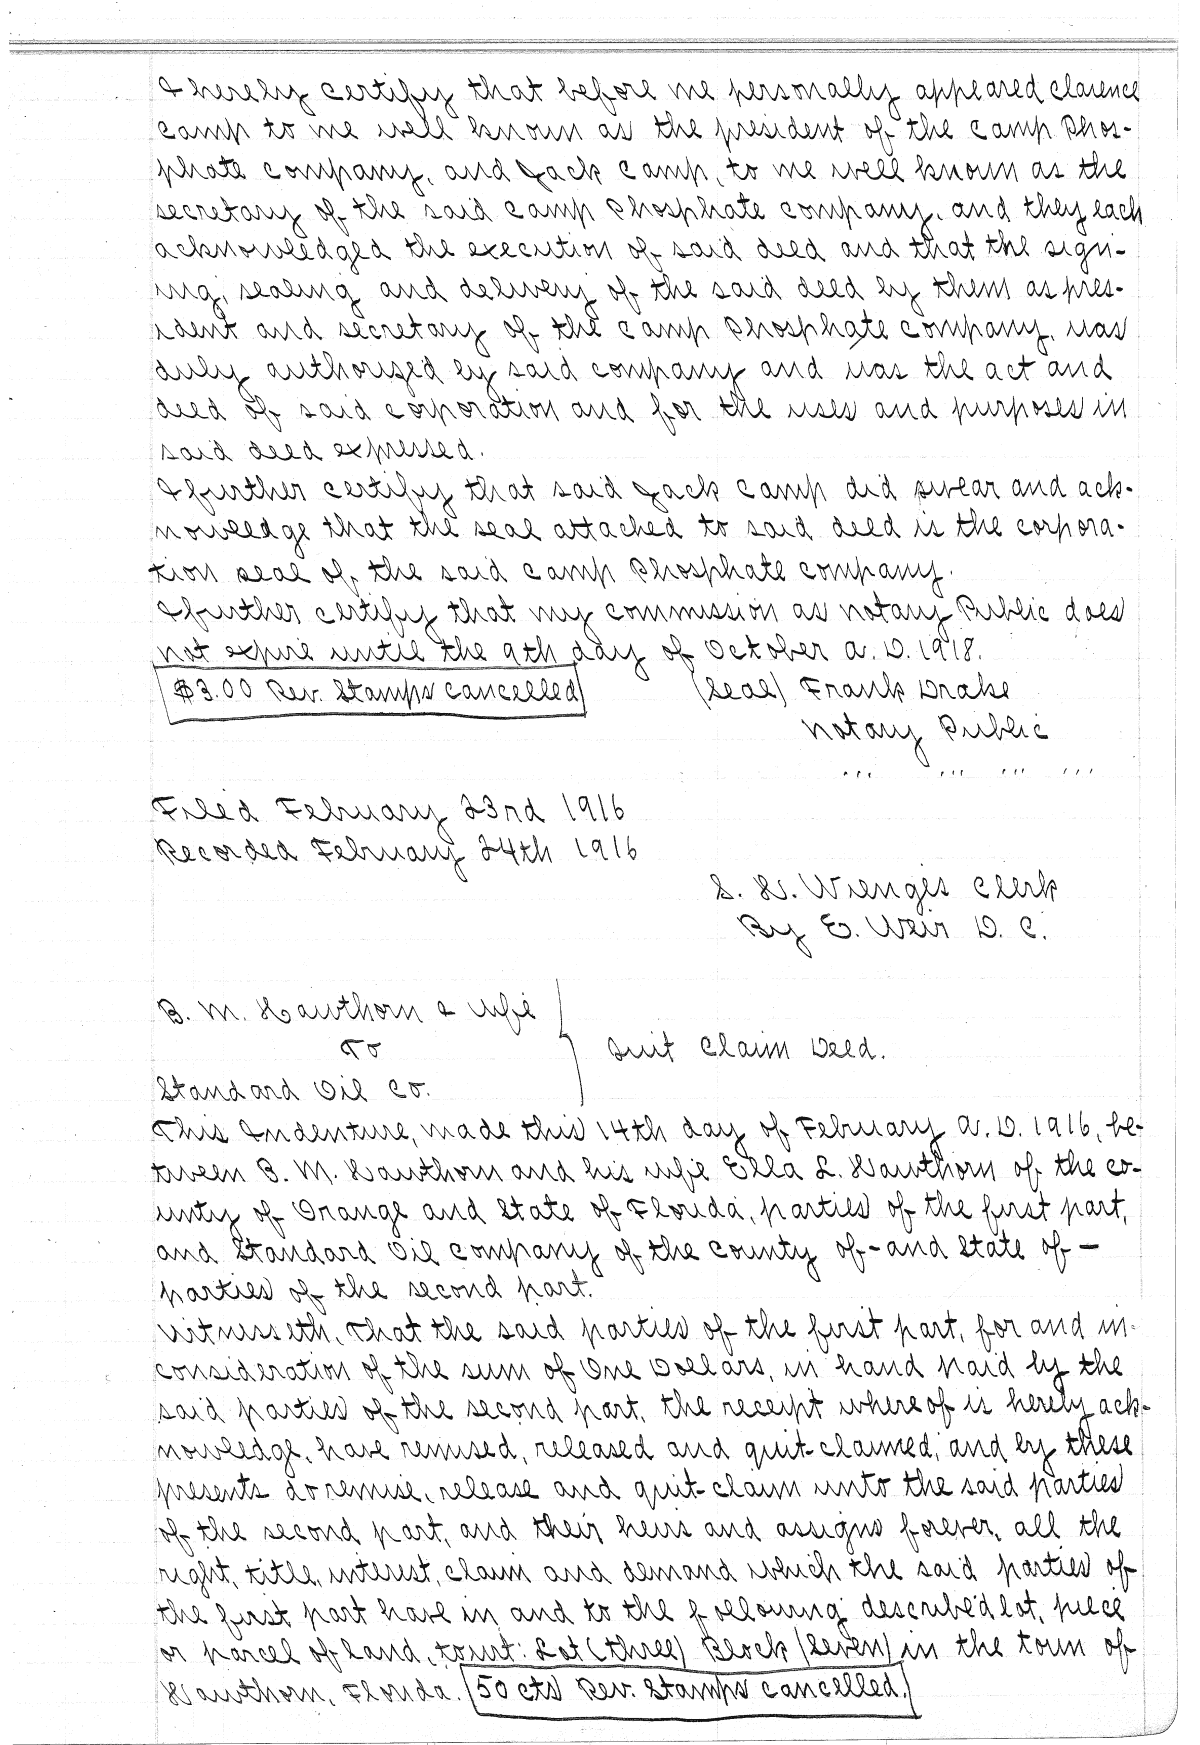 I hereby certify that before me personally appeared Clarence
Camp to me well known as the president of the Camp Phos-
phate Company, and Jack Camp, to me well known as the
secretary of the said Camp Phosphate Company, and they each
acknowledged the execution of said deed and that the sign-
ing, sealing and delivery of the said deed by them as pres-
ident and secretary of the Camp Phosphate Company, was
duly authorized by said company and was the act and
deed of said corporation and for the uses and purposes in
said deed expressed.
I further certify that said Jack Camp did swear and ack-
nowledge that the seal attached to said deed is the corpora-
tion seal of, the said Camp Phosphate Company.
I further certify that my commission as Notary Public does
not expire until the 9th day of October A.D. 1918.
$3.00 Rev. Stamps Cancelled (Seal) Frank Drake
Notary Public
,,, ,,, ,,, ,,,
Filed February 23rd 1916
Recorded February 24th 1916
S. H. Wienges Clerk
By E. Weir D. C.
B. M. Hawthorn & wife
To Quit Claim Deed.
Standard Oil Co.
This Indenture, made this 14th day of February A.D. 1916, be-
tween B. M. Hawthorn and his wife Ella L. Hawthorn of the co-
unty of Orange and State of Florida, parties of the first part,
and Standard Oil Company of the County of - and State of -
parties of the second part.
Witnesseth, That the said parties of the first part, for and in-
consideration of the sum of One Dollars, in hand paid by the
said parties of the second part, the receipt whereof is hereby ack-
nowledge, have remised, released and quit-claimed, and by these
presents do remise, release and quit-claim unto the said parties
of the second part, and their heirs and assigns forever, all the
right, title, interest, claim and demand which the said parties of
the first part have in and to the following described lot, piece
or parcel of land, towit: Lot (three) Block (Seven) in the town of
Hawthorn, Florida. 50 cts Rev. Stamps Cancelled.